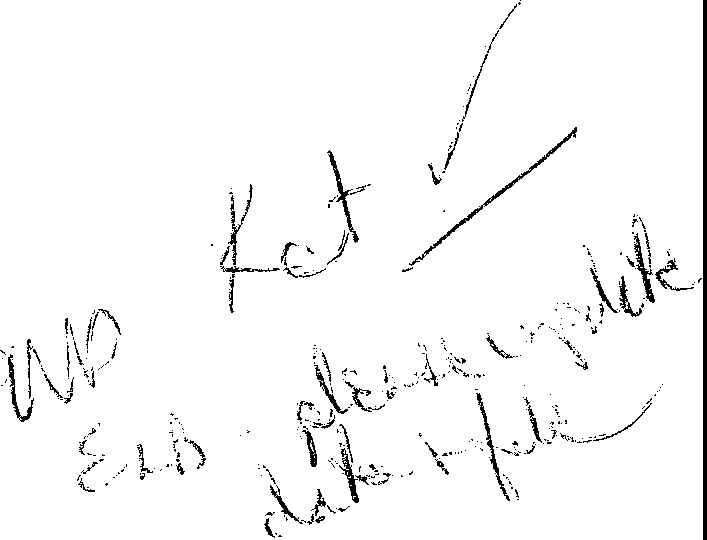 Kat
WD
ELB - please update
date + file